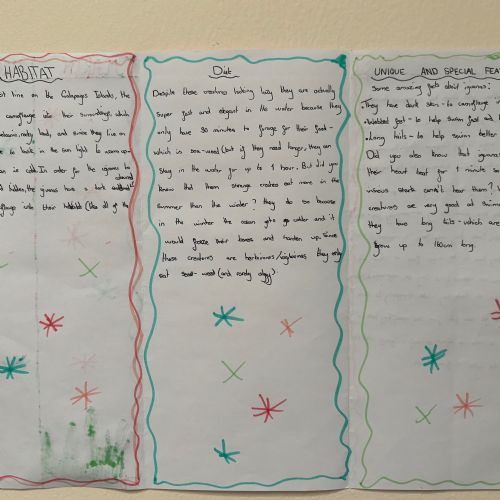 HABITAT
line on the Galapagos Islands, the
camouflage into their surroundings, which
rocky beach, and since they live on
to bask in the sun light to warm up
is cold. In order for the iguanas to
the iguanas have a dark coloured
into their habitat (like all of the
Diet
Despite these creatures looking lazy they are actually
super fast and elegant in the water because they
only have 30 minutes to forage for their food -
which is sea-weed (but if they need longer, they can
stay in the water for up to 1 hour. But did you
know that these strange creatures eat more in the
summer than the winter? they do so because
in the winter the ocean gets colder and it
would freeze their bones and harden up. Since
these creatures are herbivores they only
eat sea-weed (and rarely algy).
UNIQUE AND SPECIAL FEA
Some amazing facts about iguanas:
• they have dark skin - to camouflage
• Webbed feet - to help swim fast and
• Long tails - to help swim better
Did you also know that iguanas
their heart beat for 1 minute so
vicious shark can't hear them?
creatures are very good at swim
they have long tails - which are
grow up to 180cm long.